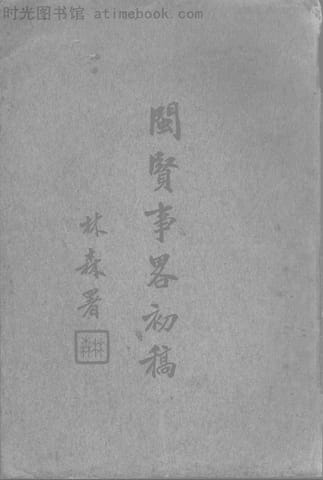 时光图书馆 - atimebook.com
閩賢事畧初稿
林森署
林森